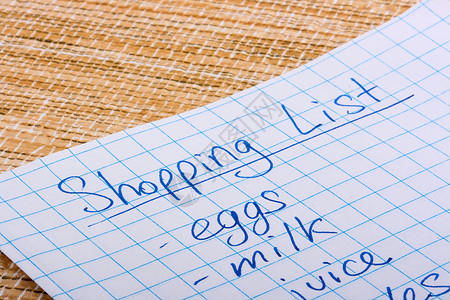 Shopping List
- eggs
- milk
juice